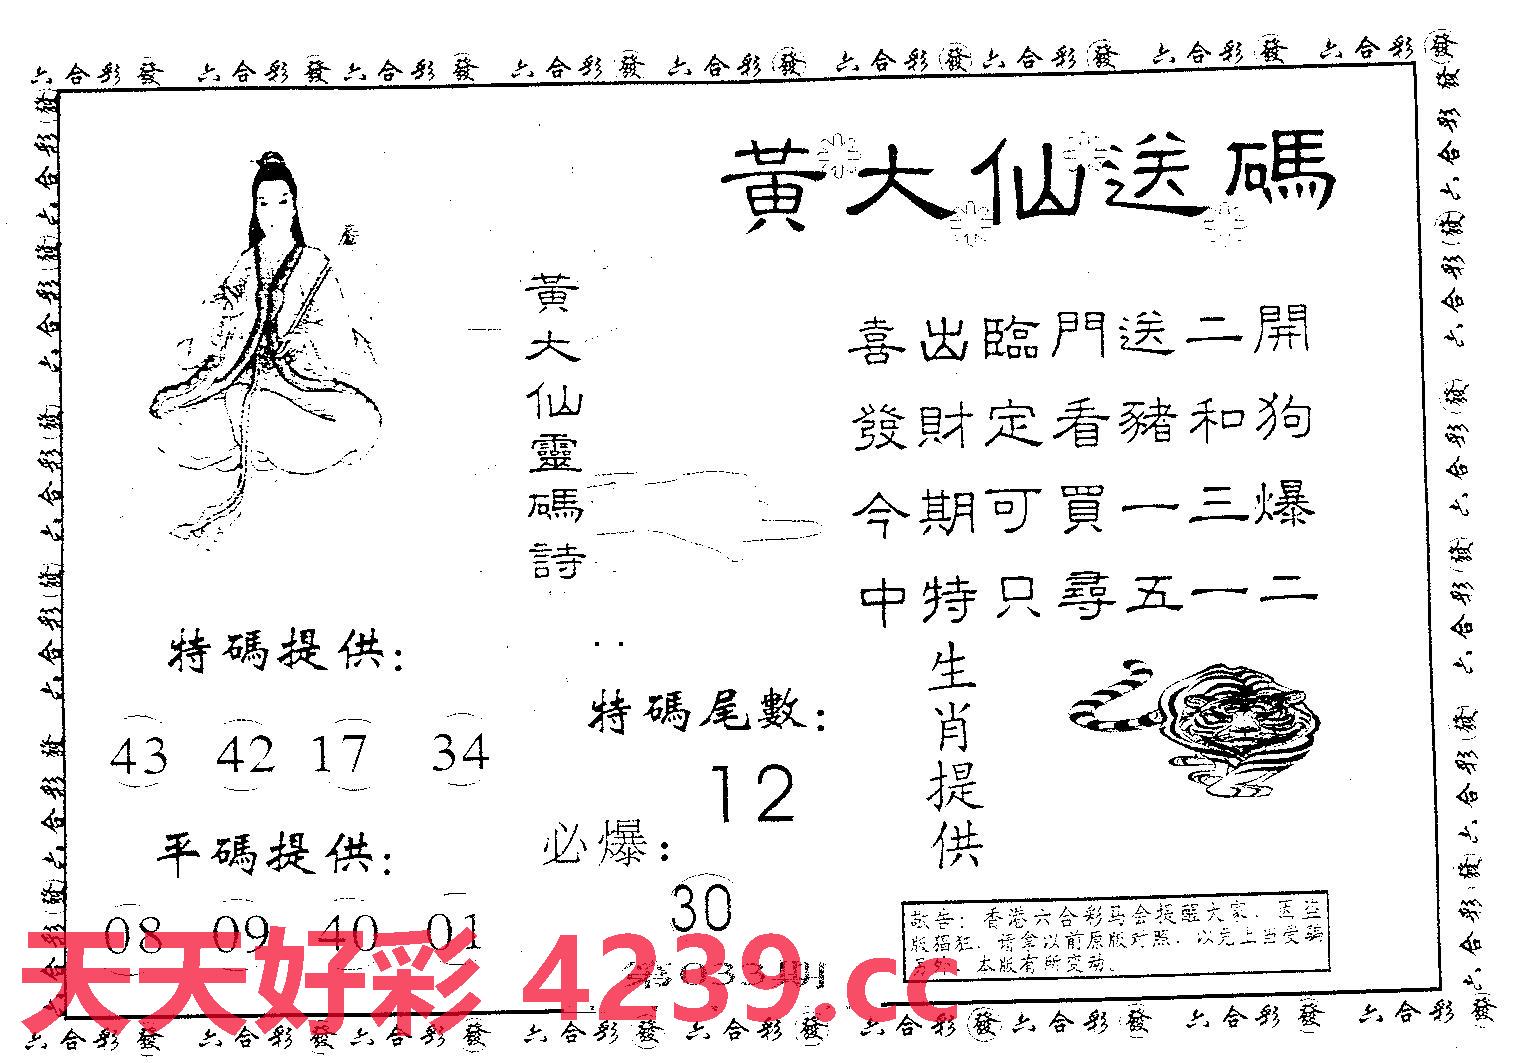 六合彩發 六合彩發 六合彩發 六合彩發 六合彩發 六合彩發 六合彩發 六合彩發 六合彩發
黃大仙送碼
黃大仙靈碼詩
喜出臨門送二開
發財定看豬和狗
今期可買一三爆
中特只尋五一二
特碼提供:
43 42 17 34
平碼提供:
08 09 40 01
特碼尾數:
12
必爆:
30
第033期
生肖提供
敬告:香港六合彩马会提醒大家,因盗
版猖狂,请拿以前原版对照,以免上当受骗
另外,本版有所变动.
天天好彩 4239.cc
六合彩發 六合彩發 六合彩發 六合彩發 六合彩發 六合彩發 六合彩發 六合彩發 六合彩發